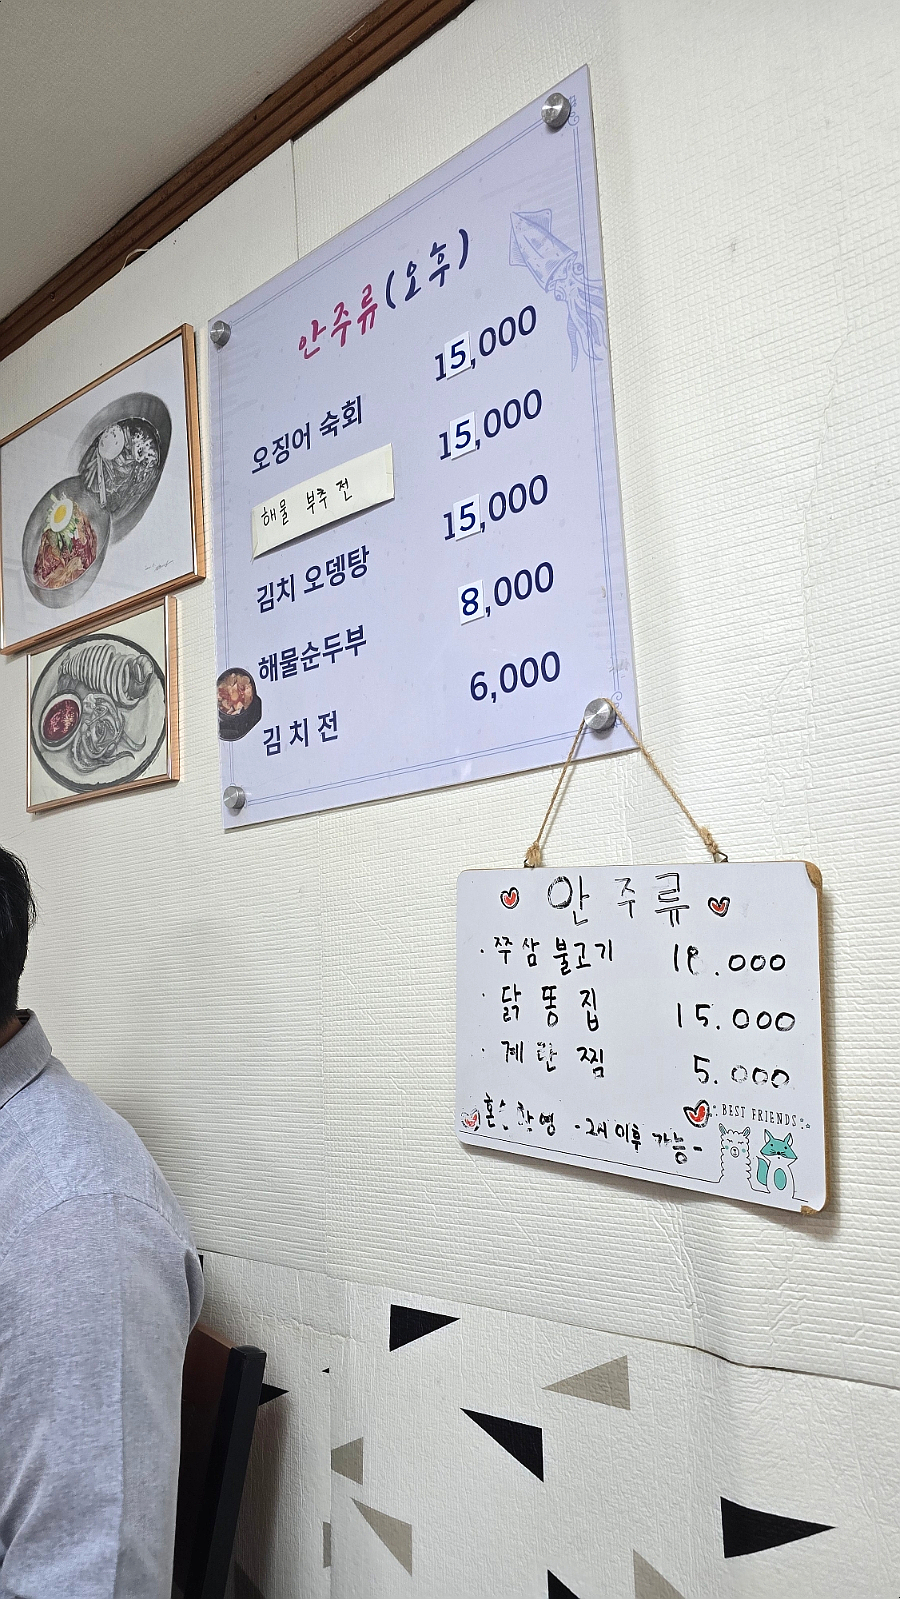 안주류(오후)
오징어 숙회 15,000
해물 부추 전 15,000
김치 오뎅탕 15,000
해물순두부 8,000
김치전 6,000
안주류
· 쭈삼 불고기 18.000
· 닭똥집 15.000
· 계란찜 5.000
혼술환영 -2시 이후 가능-
BEST FRIENDS